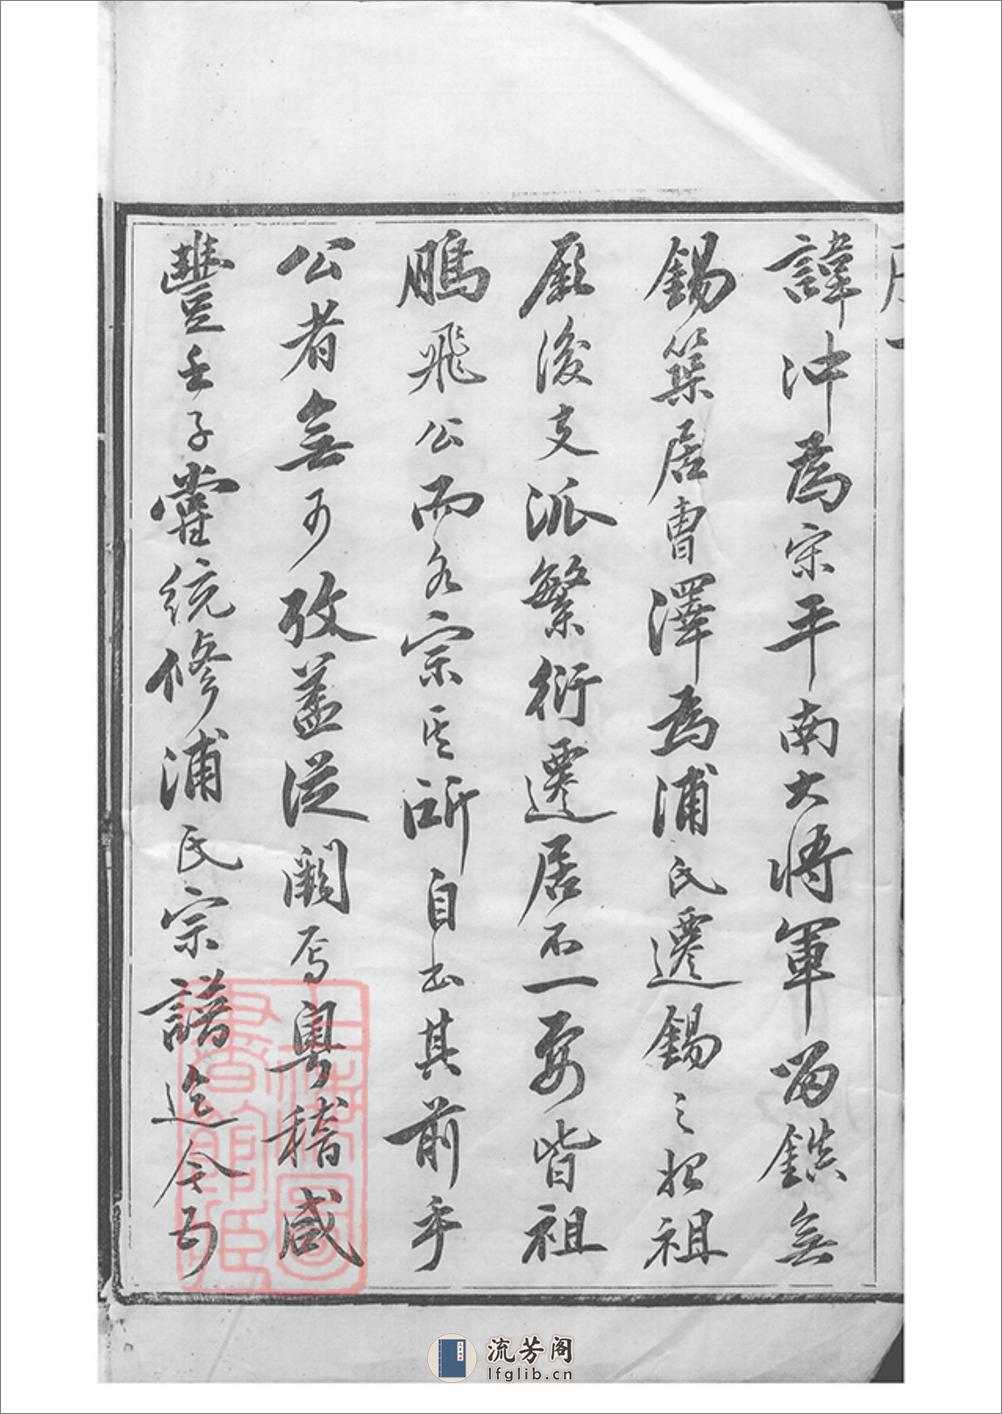 諱沖為宋平南大將軍留鎮無
錫築居曹澤為浦氏遷錫之始祖
厥後支派繁衍遷居不一要皆祖
鵬飛公而為宗其所自出其前乎
公者無可攷蓋從闕焉粵稽咸
豐壬子嘗統修浦氏宗譜迄今
上海圖書館藏
流芳阁
lfglib.cn